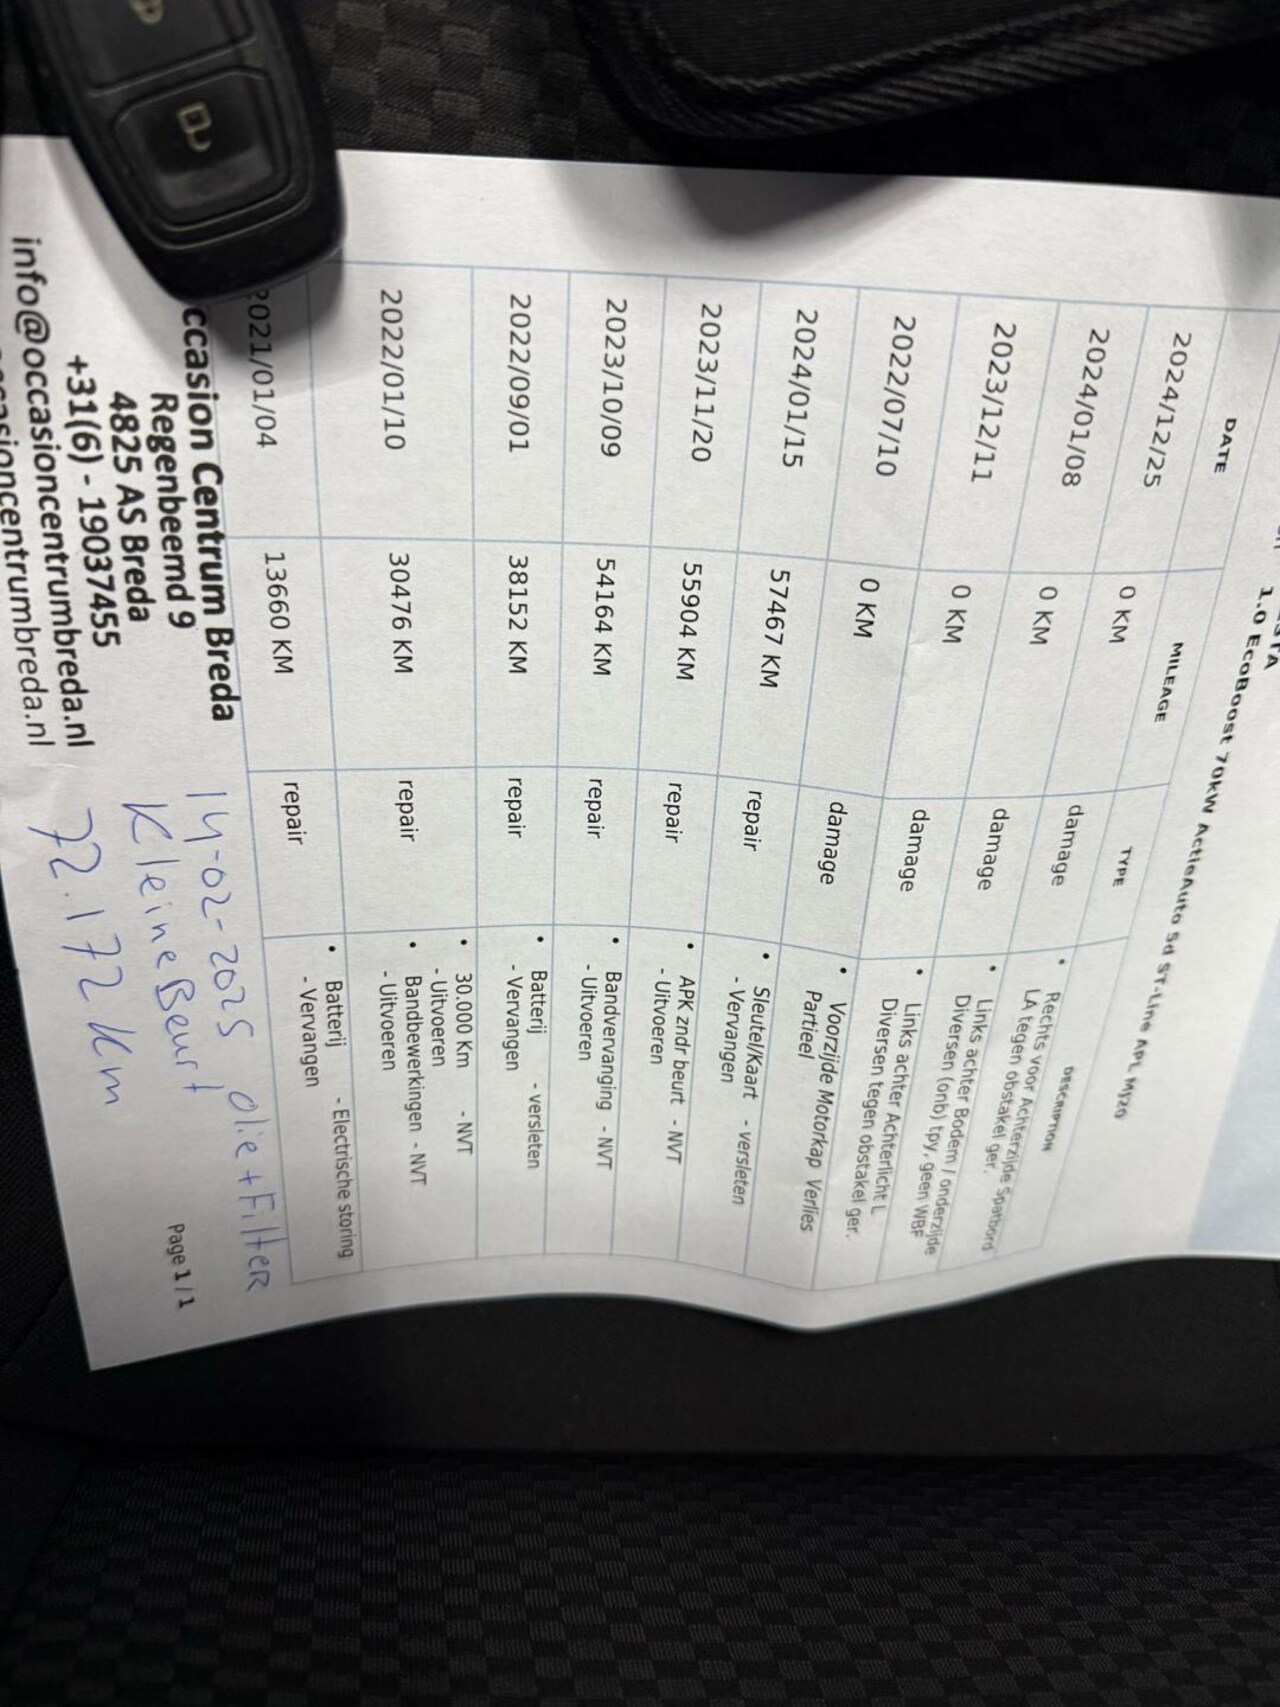 1.0 EcoBoost 70kW ActieAuto 5d ST-Line APL M520
DATE MILEAGE TYPE DESCRIPTION
2024/12/25 0 KM damage • Rechts voor Achterzijde Spatbord
LA tegen obstakel ger.
2024/01/08 0 KM damage • Links achter Bodem / onderzijde
Diversen (onb) tpy, geen WBF
2023/12/11 0 KM damage • Links achter Achterlicht L
Diversen tegen obstakel ger.
2022/07/10 0 KM damage • Voorzijde Motorkap Verlies
Partieel
2024/01/15 57467 KM repair • Sleutel/Kaart - versleten
- Vervangen
2023/11/20 55904 KM repair • APK zndr beurt - NVT
- Uitvoeren
2023/10/09 54164 KM repair • Bandvervanging - NVT
- Uitvoeren
2022/09/01 38152 KM repair • Batterij - versleten
- Vervangen
2022/01/10 30476 KM repair • 30.000 Km - NVT
- Uitvoeren
• Bandbewerkingen - NVT
- Uitvoeren
2021/01/04 13660 KM repair • Batterij - Electrische storing
- Vervangen
ccasion Centrum Breda
Regenbeemd 9
4825 AS Breda
+31(6) - 19037455
info@occasioncentrumbreda.nl
casioncentrumbreda.nl
14-02-2025 olie + Filter
Kleine Beurt
72.172 Km
Page 1 / 1